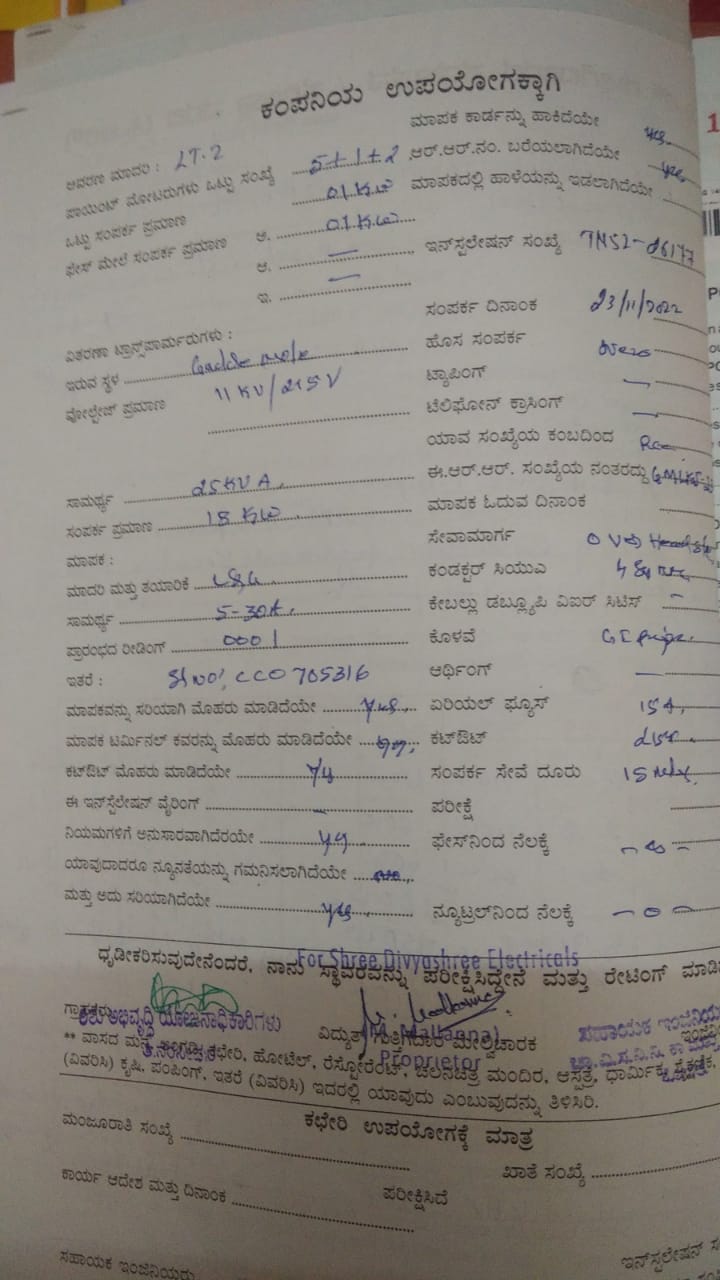 ಕಂಪನಿಯ ಉಪಯೋಗಕ್ಕಾಗಿ
ಆವರಣ ಮಾದರಿ : LT-2
ಪಾಯಿಂಟ್ ಮೋಟರುಗಳು ಒಟ್ಟು ಸಂಖ್ಯೆ 5+1+2
ಒಟ್ಟು ಸಂಪರ್ಕ ಪ್ರಮಾಣ 01 KW
ಫೇಸ್ ಮೇಲೆ ಸಂಪರ್ಕ ಪ್ರಮಾಣ ಅ. 01 KW
ಆ. —
ಇ. —
ವಿತರಣಾ ಟ್ರಾನ್ಸ್‌ಪಾರ್ಮರುಗಳು :
ಇರುವ ಸ್ಥಳ
ವೋಲ್ಟೇಜ್ ಪ್ರಮಾಣ 11 KV/215V
ಸಾಮರ್ಥ್ಯ 25KVA
ಸಂಪರ್ಕ ಪ್ರಮಾಣ 18 KW
ಮಾಪಕ :
ಮಾದರಿ ಮತ್ತು ತಯಾರಿಕೆ L&G
ಸಾಮರ್ಥ್ಯ 5-30A
ಪ್ರಾರಂಭದ ರೀಡಿಂಗ್ 0001
ಇತರೆ : Sl No: CCO705316
ಮಾಪಕವನ್ನು ಸರಿಯಾಗಿ ಮೊಹರು ಮಾಡಿದೆಯೇ yes
ಮಾಪಕ ಟರ್ಮಿನಲ್ ಕವರನ್ನು ಮೊಹರು ಮಾಡಿದೆಯೇ
ಕಟ್‌ಔಟ್ ಮೊಹರು ಮಾಡಿದೆಯೇ
ಈ ಇನ್‌ಸ್ಪಲೇಷನ್ ವೈರಿಂಗ್ —
ನಿಯಮಗಳಿಗೆ ಅನುಸಾರವಾಗಿದೆರಯೇ
ಯಾವುದಾದರೂ ನ್ಯೂನತೆಯನ್ನು ಗಮನಿಸಲಾಗಿದೆಯೇ
ಮತ್ತು ಅದು ಸರಿಯಾಗಿದೆಯೇ yes
ಮಾಪಕ ಕಾರ್ಡನ್ನು ಹಾಕಿದೆಯೇ yes
ಆರ್.ಆರ್.ನಂ. ಬರೆಯಲಾಗಿದೆಯೇ yes
ಮಾಪಕದಲ್ಲಿ ಹಾಳೆಯನ್ನು ಇಡಲಾಗಿದೆಯೇ
ಇನ್‌ಸ್ಪಲೇಷನ್ ಸಂಖ್ಯೆ TNS2-26177
ಸಂಪರ್ಕ ದಿನಾಂಕ 23/11/2022
ಹೊಸ ಸಂಪರ್ಕ New
ಟ್ಯಾಪಿಂಗ್ —
ಟೆಲಿಫೋನ್ ಕ್ರಾಸಿಂಗ್ —
ಯಾವ ಸಂಖ್ಯೆಯ ಕಂಬದಿಂದ
ಈ.ಆರ್.ಆರ್. ಸಂಖ್ಯೆಯ ನಂತರದ್ದು
ಮಾಪಕ ಓದುವ ದಿನಾಂಕ
ಸೇವಾಮಾರ್ಗ
ಕಂಡಕ್ಟರ್ ಸಿಯುಎ
ಕೇಬಲ್ಲು ಡಬ್ಲ್ಯೂಪಿ ವಿಐರ್ ಸಿಟಿಸ್ -
ಕೊಳವೆ GI pipe
ಆರ್ಥಿಂಗ್ —
ಏರಿಯಲ್ ಫ್ಯೂಸ್ 15A
ಕಟ್‌ಔಟ್
ಸಂಪರ್ಕ ಸೇವೆ ದೂರು
ಪರೀಕ್ಷೆ
ಫೇಸ್‌ನಿಂದ ನೆಲಕ್ಕೆ - 0 -
ನ್ಯೂಟ್ರಲ್‌ನಿಂದ ನೆಲಕ್ಕೆ - 0 -
For Shree Divyashree Electricals
ಧೃಡೀಕರಿಸುವುದೇನೆಂದರೆ, ನಾನು ಸ್ಥಾವರವನ್ನು ಪರೀಕ್ಷಿಸಿದ್ದೇನೆ ಮತ್ತು ರೇಟಿಂಗ್
ಗ್ರಾಹಕರು
ಶಿಶು ಅಭಿವೃದ್ಧಿ ಯೋಜನಾಧಿಕಾರಿಗಳು
ವಿದ್ಯುತ್ ಗುತ್ತಿಗೆದಾರ ಮೇಲ್ವಿಚಾರಕ
(M. Mallanna)
Proprietor
ಸಹಾಯಕ ಇಂಜಿನಿಯ
** ವಾಸದ ಮನೆ, ಅಂಗಡಿ, ಕಛೇರಿ, ಹೋಟೆಲ್, ರೆಸ್ಟೋರೆಂಟ್, ಚಲನಚಿತ್ರ ಮಂದಿರ, ಆಸ್ಪತ್ರೆ, ಧಾರ್ಮಿಕ,
(ವಿವರಿಸಿ) ಕೃಷಿ, ಪಂಪಿಂಗ್, ಇತರೆ (ವಿವರಿಸಿ) ಇದರಲ್ಲಿ ಯಾವುದು ಎಂಬುವುದನ್ನು ತಿಳಿಸಿರಿ.
ಕಛೇರಿ ಉಪಯೋಗಕ್ಕೆ ಮಾತ್ರ
ಮಂಜೂರಾತಿ ಸಂಖ್ಯೆ
ಖಾತೆ ಸಂಖ್ಯೆ
ಕಾರ್ಯ ಆದೇಶ ಮತ್ತು ದಿನಾಂಕ
ಪರೀಕ್ಷಿಸಿದೆ
ಸಹಾಯಕ ಇಂಜಿನಿಯರು
ಇನ್‌ಸ್ಪಲೇಷನ್